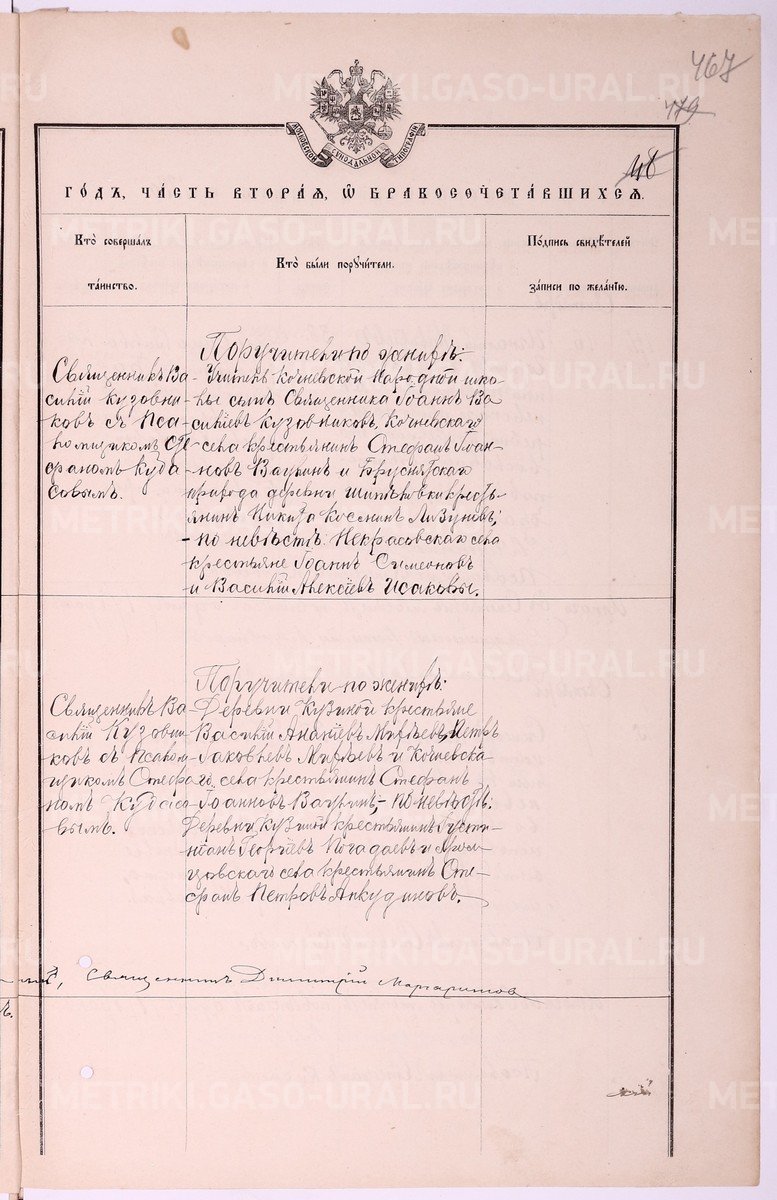 467
479
48
МОСКОВСКОЙ СѴНОДАЛЬНОЙ ТИПОГРАФІИ
ГО́ДЪ, ЧА́СТЬ ВТОРА́Я, Ѡ҆ БРАКОСОЧЕТА́ВШИХСЯ.
Кто̀ соверша́лъ
та́инство.
Кто̀ бы́ли порꙋчи́тели.
По́дпись свидѣ́телей
за́писи по жела́нію.
Священникъ Ва-
силій Кузовни-
ковъ съ Псa-
ломщикомъ Сте-
фаномъ Куда-
совымъ.
Поручители по женихѣ:
Учитель Кочневской Народной шко-
лы сынъ Священника Іоаннъ Ва-
силіевъ Кузовниковъ, Кочневскаго
села крестьянинъ Стефанъ Іоан-
новъ Ваулинъ и Бруснятскаго
прихода деревни Шипѣловки кресть-
янинъ Никита Косминъ Лизуновъ;
- по невѣстѣ: Некрасовскаго села
крестьяне Іоаннъ Симеоновъ
и Василій Алексіевъ Исаковы.
Священникъ Ва-
силій Кузовни-
ковъ съ Псалом-
щикомъ Стефа-
номъ Кудасо-
вымъ.
Поручители по женихѣ:
Деревни Кузиной крестьяне
Василій Ананіевъ Петръ
Іаковлевъ и Кочневска-
го села крестьянинъ Стефанъ
Іоанновъ Ваулинъ, - по невѣстѣ:
Деревни Кузиной крестьянинъ Іусти-
ніанъ Георгіевъ Погадаевъ и
села крестьянинъ Сте-
фанъ Петровъ Анкудиновъ.
Священникъ Димитрій Маргаритовъ
METRIKI.GASO-URAL.RU